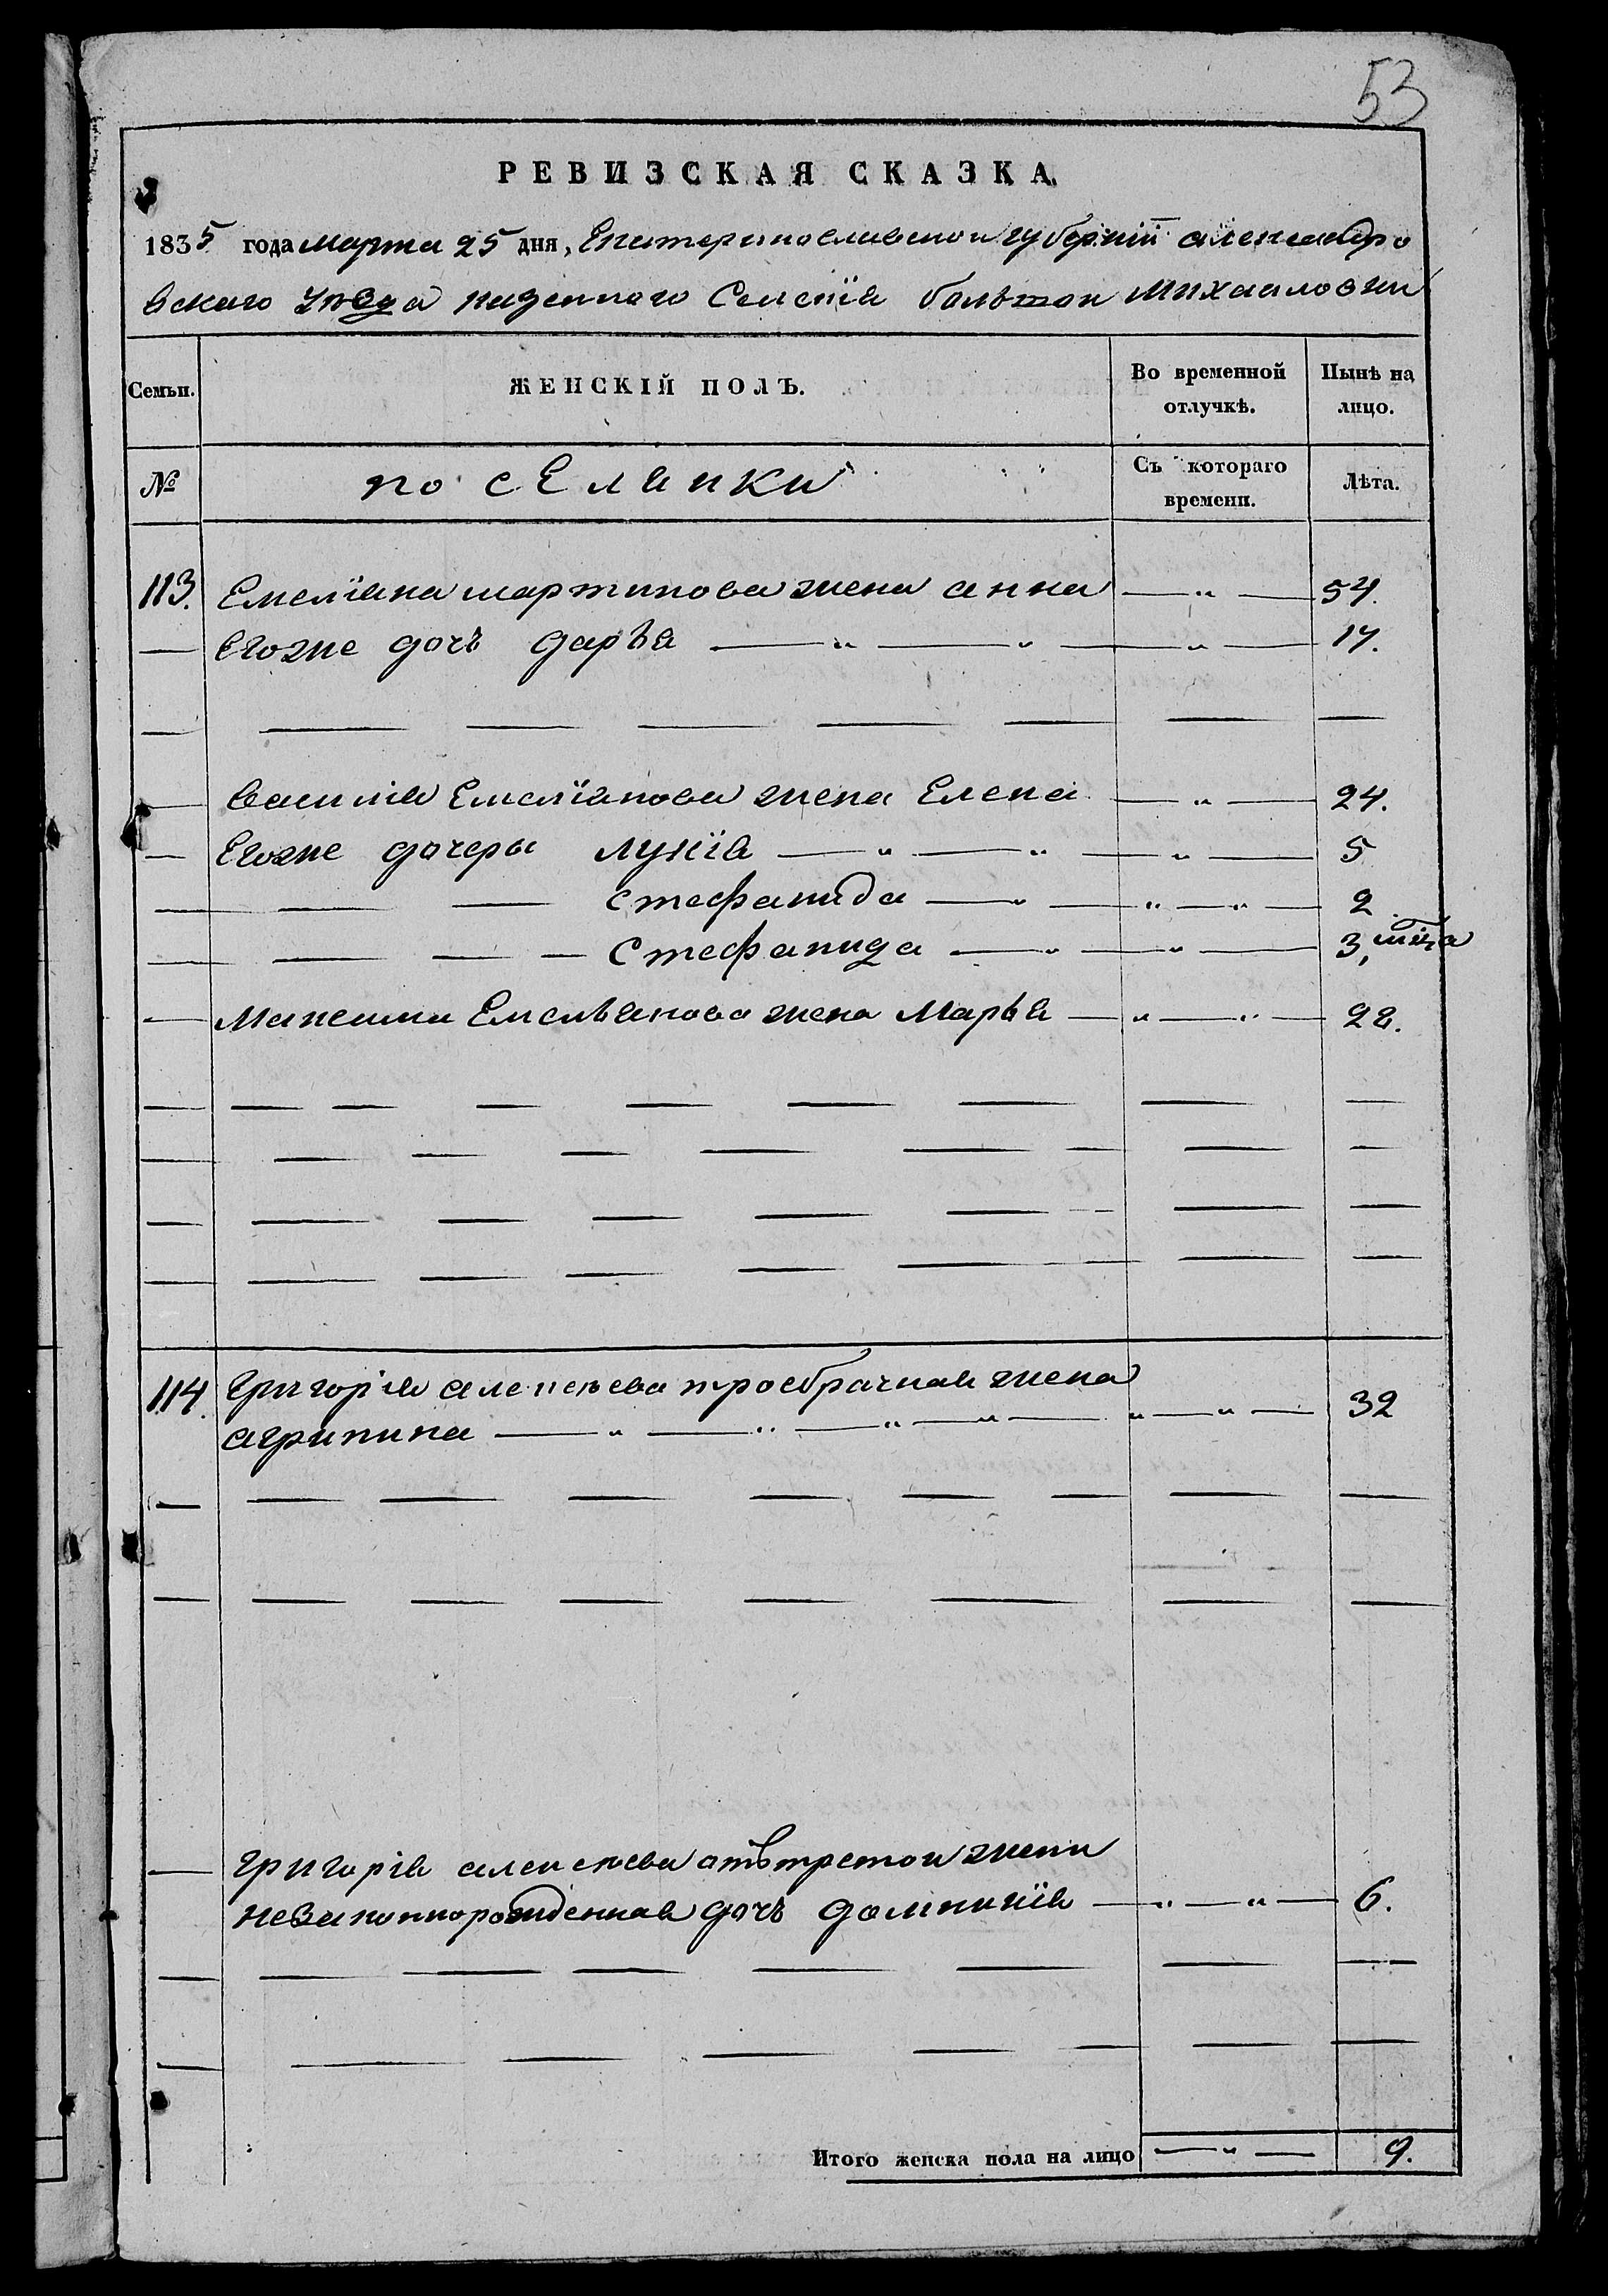 53
РЕВИЗСКАЯ СКАЗКА
1835 года марта 25 дня, Екатеринославской губернии александро
вского уезда казенного Селенїя болшои михаиловки
Семьи. ЖЕНСКІЙ ПОЛЪ. Во временной отлучкѣ. Нынѣ на лицо.
№ поселянки Съ котораго времени. Лѣта.
113. Емелїана мартинова жена анна — „ — 54.
— Егоже дочъ даръя — „ — „ — „ — 17.
— василия Емелїанова жена Елена — „ — 24.
— Егоже дочеры лукїя — „ — „ — „ — 5
— стефанида — „ — „ — „ — 2
— Стефанида — „ — „ — 3, мца
— максима Емельянова жена Маръя — „ — „ — 22.
114. григория алексѣева троебрачная жена
агрипина — „ — „ — „ — „ — „ — „ — 32
— григория алексѣева отъ третои жени
незаконнорожденная дочъ домникїя — „ — „ — 6.
Итого женска пола на лицо — „ — 9.